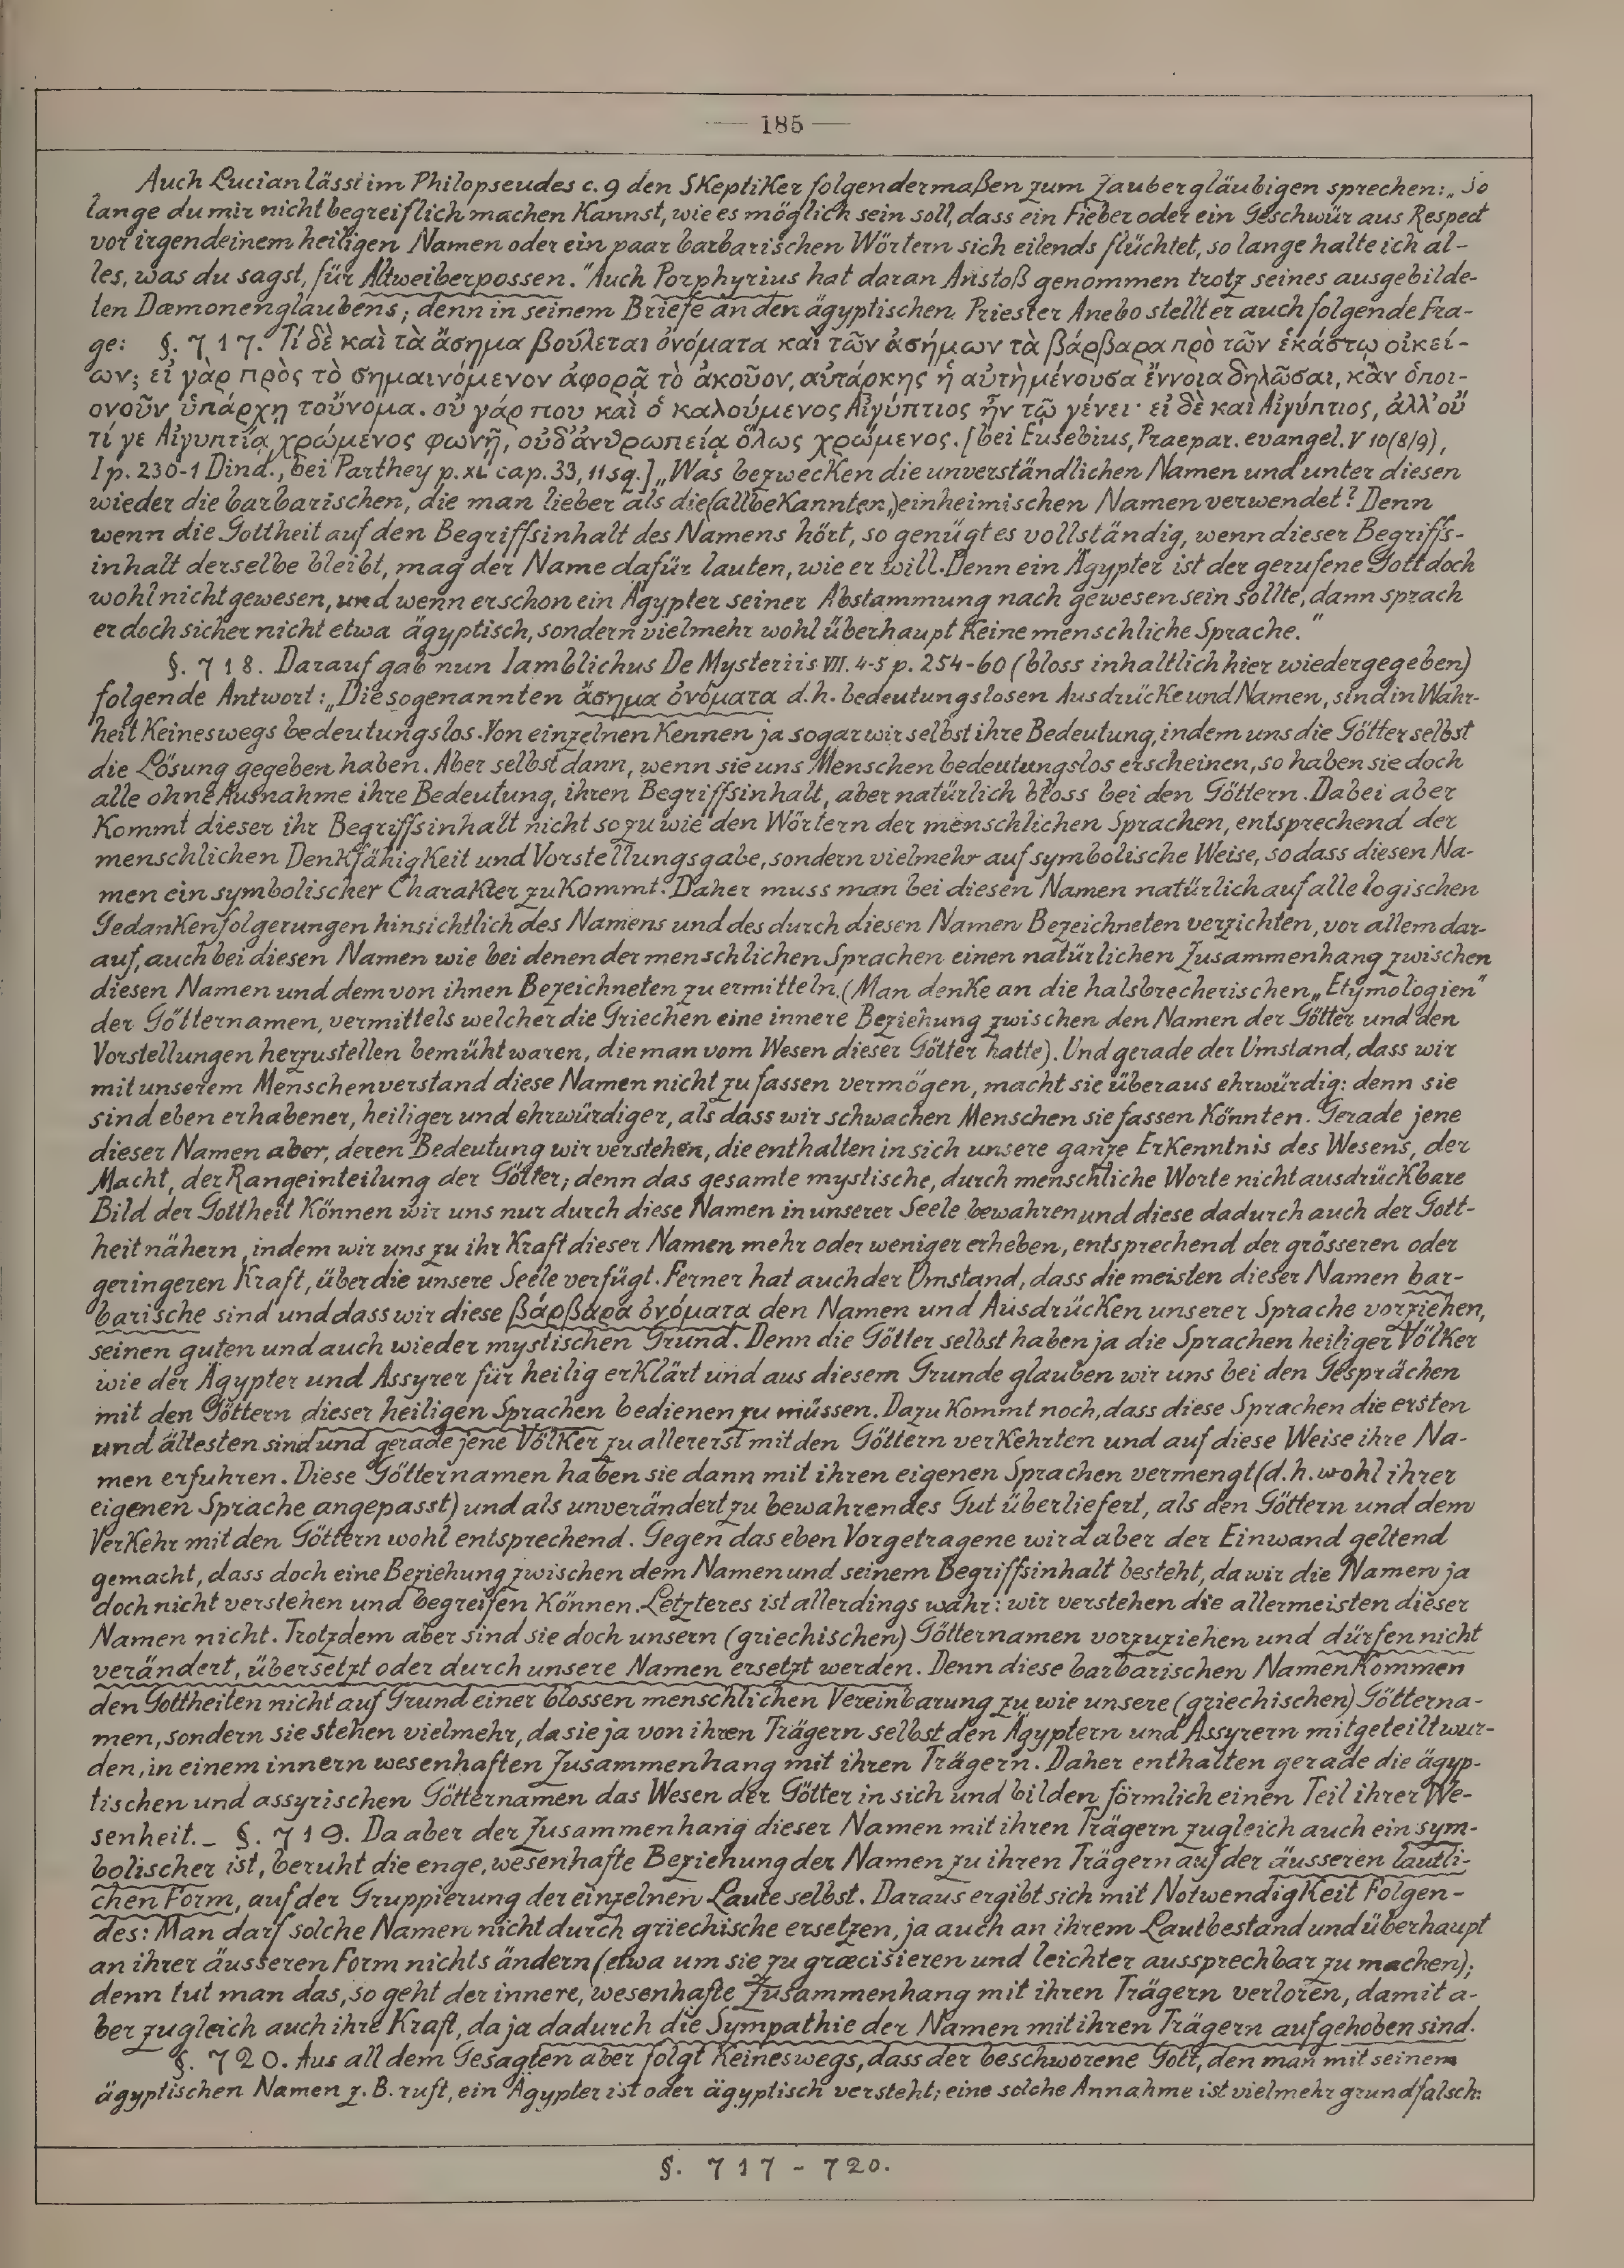 — 185 —
Auch Lucian lässt im Philopseudes c. 9 den Skeptiker folgendermaßen zum Zaubergläubigen sprechen: „So
lange du mir nicht begreiflich machen kannst, wie es möglich sein soll, dass ein Fieber oder ein Geschwür aus Respect
vor irgendeinem heiligen Namen oder ein paar barbarischen Wörtern sich eilends flüchtet, so lange halte ich al-
les, was du sagst, für Altweiberpossen." Auch Porphyrius hat daran Anstoß genommen trotz seines ausgebilde-
ten Dæmonenglaubens; denn in seinem Briefe an den ägyptischen Priester Anebo stellt er auch folgende Fra-
ge: §. 717. Τί δὲ καὶ τὰ ἄσημα βούλεται ὀνόματα καὶ τῶν ἀσήμων τὰ βάρβαρα πρὸ τῶν ἑκάστῳ οἰκεί-
ων; εἰ γὰρ πρὸς τὸ σημαινόμενον ἀφορᾷ τὸ ἀκοῦον, αὐτάρκης ἡ αὐτὴ μένουσα ἔννοια δηλῶσαι, κἂν ὁποι-
ονοῦν ὑπάρχῃ τοὔνομα. οὐ γάρ που καὶ ὁ καλούμενος Αἰγύπτιος ἦν τῷ γένει· εἰ δὲ καὶ Αἰγύπτιος, ἀλλ' οὔ
τί γε Αἰγυπτίᾳ χρώμενος φωνῇ, οὐδ' ἀνθρωπείᾳ ὅλως χρώμενος. [bei Eusebius, Praepar. evangel. V 10 (8/9),
I p. 230-1 Dind., bei Parthey p. XL cap. 33, 11 sq.] „Was bezwecken die unverständlichen Namen und unter diesen
wieder die barbarischen, die man lieber als die (allbekannten,) einheimischen Namen verwendet? Denn
wenn die Gottheit auf den Begriffsinhalt des Namens hört, so genügt es vollständig, wenn dieser Begriffs-
inhalt derselbe bleibt, mag der Name dafür lauten, wie er will. Denn ein Ägypter ist der gerufene Gott doch
wohl nicht gewesen, und wenn er schon ein Ägypter seiner Abstammung nach gewesen sein sollte, dann sprach
er doch sicher nicht etwa ägyptisch, sondern vielmehr wohl überhaupt keine menschliche Sprache."
§. 718. Darauf gab nun Iamblichus De Mysteriis VII. 4-5 p. 254-60 (bloss inhaltlich hier wiedergegeben)
folgende Antwort: „Die sogenannten ἄσημα ὀνόματα d.h. bedeutungslosen Ausdrücke und Namen, sind in Wahr-
heit keineswegs bedeutungslos. Von einzelnen kennen ja sogar wir selbst ihre Bedeutung, indem uns die Götter selbst
die Lösung gegeben haben. Aber selbst dann, wenn sie uns Menschen bedeutungslos erscheinen, so haben sie doch
alle ohne Ausnahme ihre Bedeutung, ihren Begriffsinhalt, aber natürlich bloss bei den Göttern. Dabei aber
kommt dieser ihr Begriffsinhalt nicht so zu wie den Wörtern der menschlichen Sprachen, entsprechend der
menschlichen Denkfähigkeit und Vorstellungsgabe, sondern vielmehr auf symbolische Weise, so dass diesen Na-
men ein symbolischer Charakter zukommt. Daher muss man bei diesen Namen natürlich auf alle logischen
Gedankenfolgerungen hinsichtlich des Namens und des durch diesen Namen Bezeichneten verzichten, vor allem dar-
auf, auch bei diesen Namen wie bei denen der menschlichen Sprachen einen natürlichen Zusammenhang zwischen
diesen Namen und dem von ihnen Bezeichneten zu ermitteln. (Man denke an die halsbrecherischen „Etymologien"
der Götternamen, vermittels welcher die Griechen eine innere Beziehung zwischen den Namen der Götter und den
Vorstellungen herzustellen bemüht waren, die man vom Wesen dieser Götter hatte). Und gerade der Umstand, dass wir
mit unserem Menschenverstand diese Namen nicht zu fassen vermögen, macht sie überaus ehrwürdig: denn sie
sind eben erhabener, heiliger und ehrwürdiger, als dass wir schwachen Menschen sie fassen könnten. Gerade jene
dieser Namen aber, deren Bedeutung wir verstehen, die enthalten in sich unsere ganze Erkenntnis des Wesens, der
Macht, der Rangeinteilung der Götter; denn das gesamte mystische, durch menschliche Worte nicht ausdrückbare
Bild der Gottheit können wir uns nur durch diese Namen in unserer Seele bewahren und diese dadurch auch der Gott-
heit nähern, indem wir uns zu ihr kraft dieser Namen mehr oder weniger erheben, entsprechend der grösseren oder
geringeren Kraft, über die unsere Seele verfügt. Ferner hat auch der Umstand, dass die meisten dieser Namen bar-
barische sind und dass wir diese βάρβαρα ὀνόματα den Namen und Ausdrücken unserer Sprache vorziehen,
seinen guten und auch wieder mystischen Grund. Denn die Götter selbst haben ja die Sprachen heiliger Völker
wie der Ägypter und Assyrer für heilig erklärt und aus diesem Grunde glauben wir uns bei den Gesprächen
mit den Göttern dieser heiligen Sprachen bedienen zu müssen. Dazu kommt noch, dass diese Sprachen die ersten
und ältesten sind und gerade jene Völker zu allererst mit den Göttern verkehrten und auf diese Weise ihre Na-
men erfuhren. Diese Götternamen haben sie dann mit ihren eigenen Sprachen vermengt (d.h. wohl ihrer
eigenen Sprache angepasst) und als unverändert zu bewahrendes Gut überliefert, als den Göttern und dem
Verkehr mit den Göttern wohl entsprechend. Gegen das eben Vorgetragene wird aber der Einwand geltend
gemacht, dass doch eine Beziehung zwischen dem Namen und seinem Begriffsinhalt besteht, da wir die Namen ja
doch nicht verstehen und begreifen können. Letzteres ist allerdings wahr: wir verstehen die allermeisten dieser
Namen nicht. Trotzdem aber sind sie doch unsern (griechischen) Götternamen vorzuziehen und dürfen nicht
verändert, übersetzt oder durch unsere Namen ersetzt werden. Denn diese barbarischen Namen kommen
den Gottheiten nicht auf Grund einer blossen menschlichen Vereinbarung zu wie unsere (griechischen) Götterna-
men, sondern sie stehen vielmehr, da sie ja von ihren Trägern selbst den Ägyptern und Assyrern mitgeteilt wur-
den, in einem innern wesenhaften Zusammenhang mit ihren Trägern. Daher enthalten gerade die ägyp-
tischen und assyrischen Götternamen das Wesen der Götter in sich und bilden förmlich einen Teil ihrer We-
senheit. _ §. 719. Da aber der Zusammenhang dieser Namen mit ihren Trägern zugleich auch ein sym-
bolischer ist, beruht die enge, wesenhafte Beziehung der Namen zu ihren Trägern auf der äusseren lautli-
chen Form, auf der Gruppierung der einzelnen Laute selbst. Daraus ergibt sich mit Notwendigkeit Folgen-
des: Man darf solche Namen nicht durch griechische ersetzen, ja auch an ihrem Lautbestand und überhaupt
an ihrer äusseren Form nichts ändern (etwa um sie zu græcisieren und leichter aussprechbar zu machen);
denn tut man das, so geht der innere, wesenhafte Zusammenhang mit ihren Trägern verloren, damit a-
ber zugleich auch ihre Kraft, da ja dadurch die Sympathie der Namen mit ihren Trägern aufgehoben sind.
§. 720. Aus all dem Gesagten aber folgt keineswegs, dass der beschworene Gott, den man mit seinem
ägyptischen Namen z. B. ruft, ein Ägypter ist oder ägyptisch versteht; eine solche Annahme ist vielmehr grundfalsch:
§. 717 - 720.